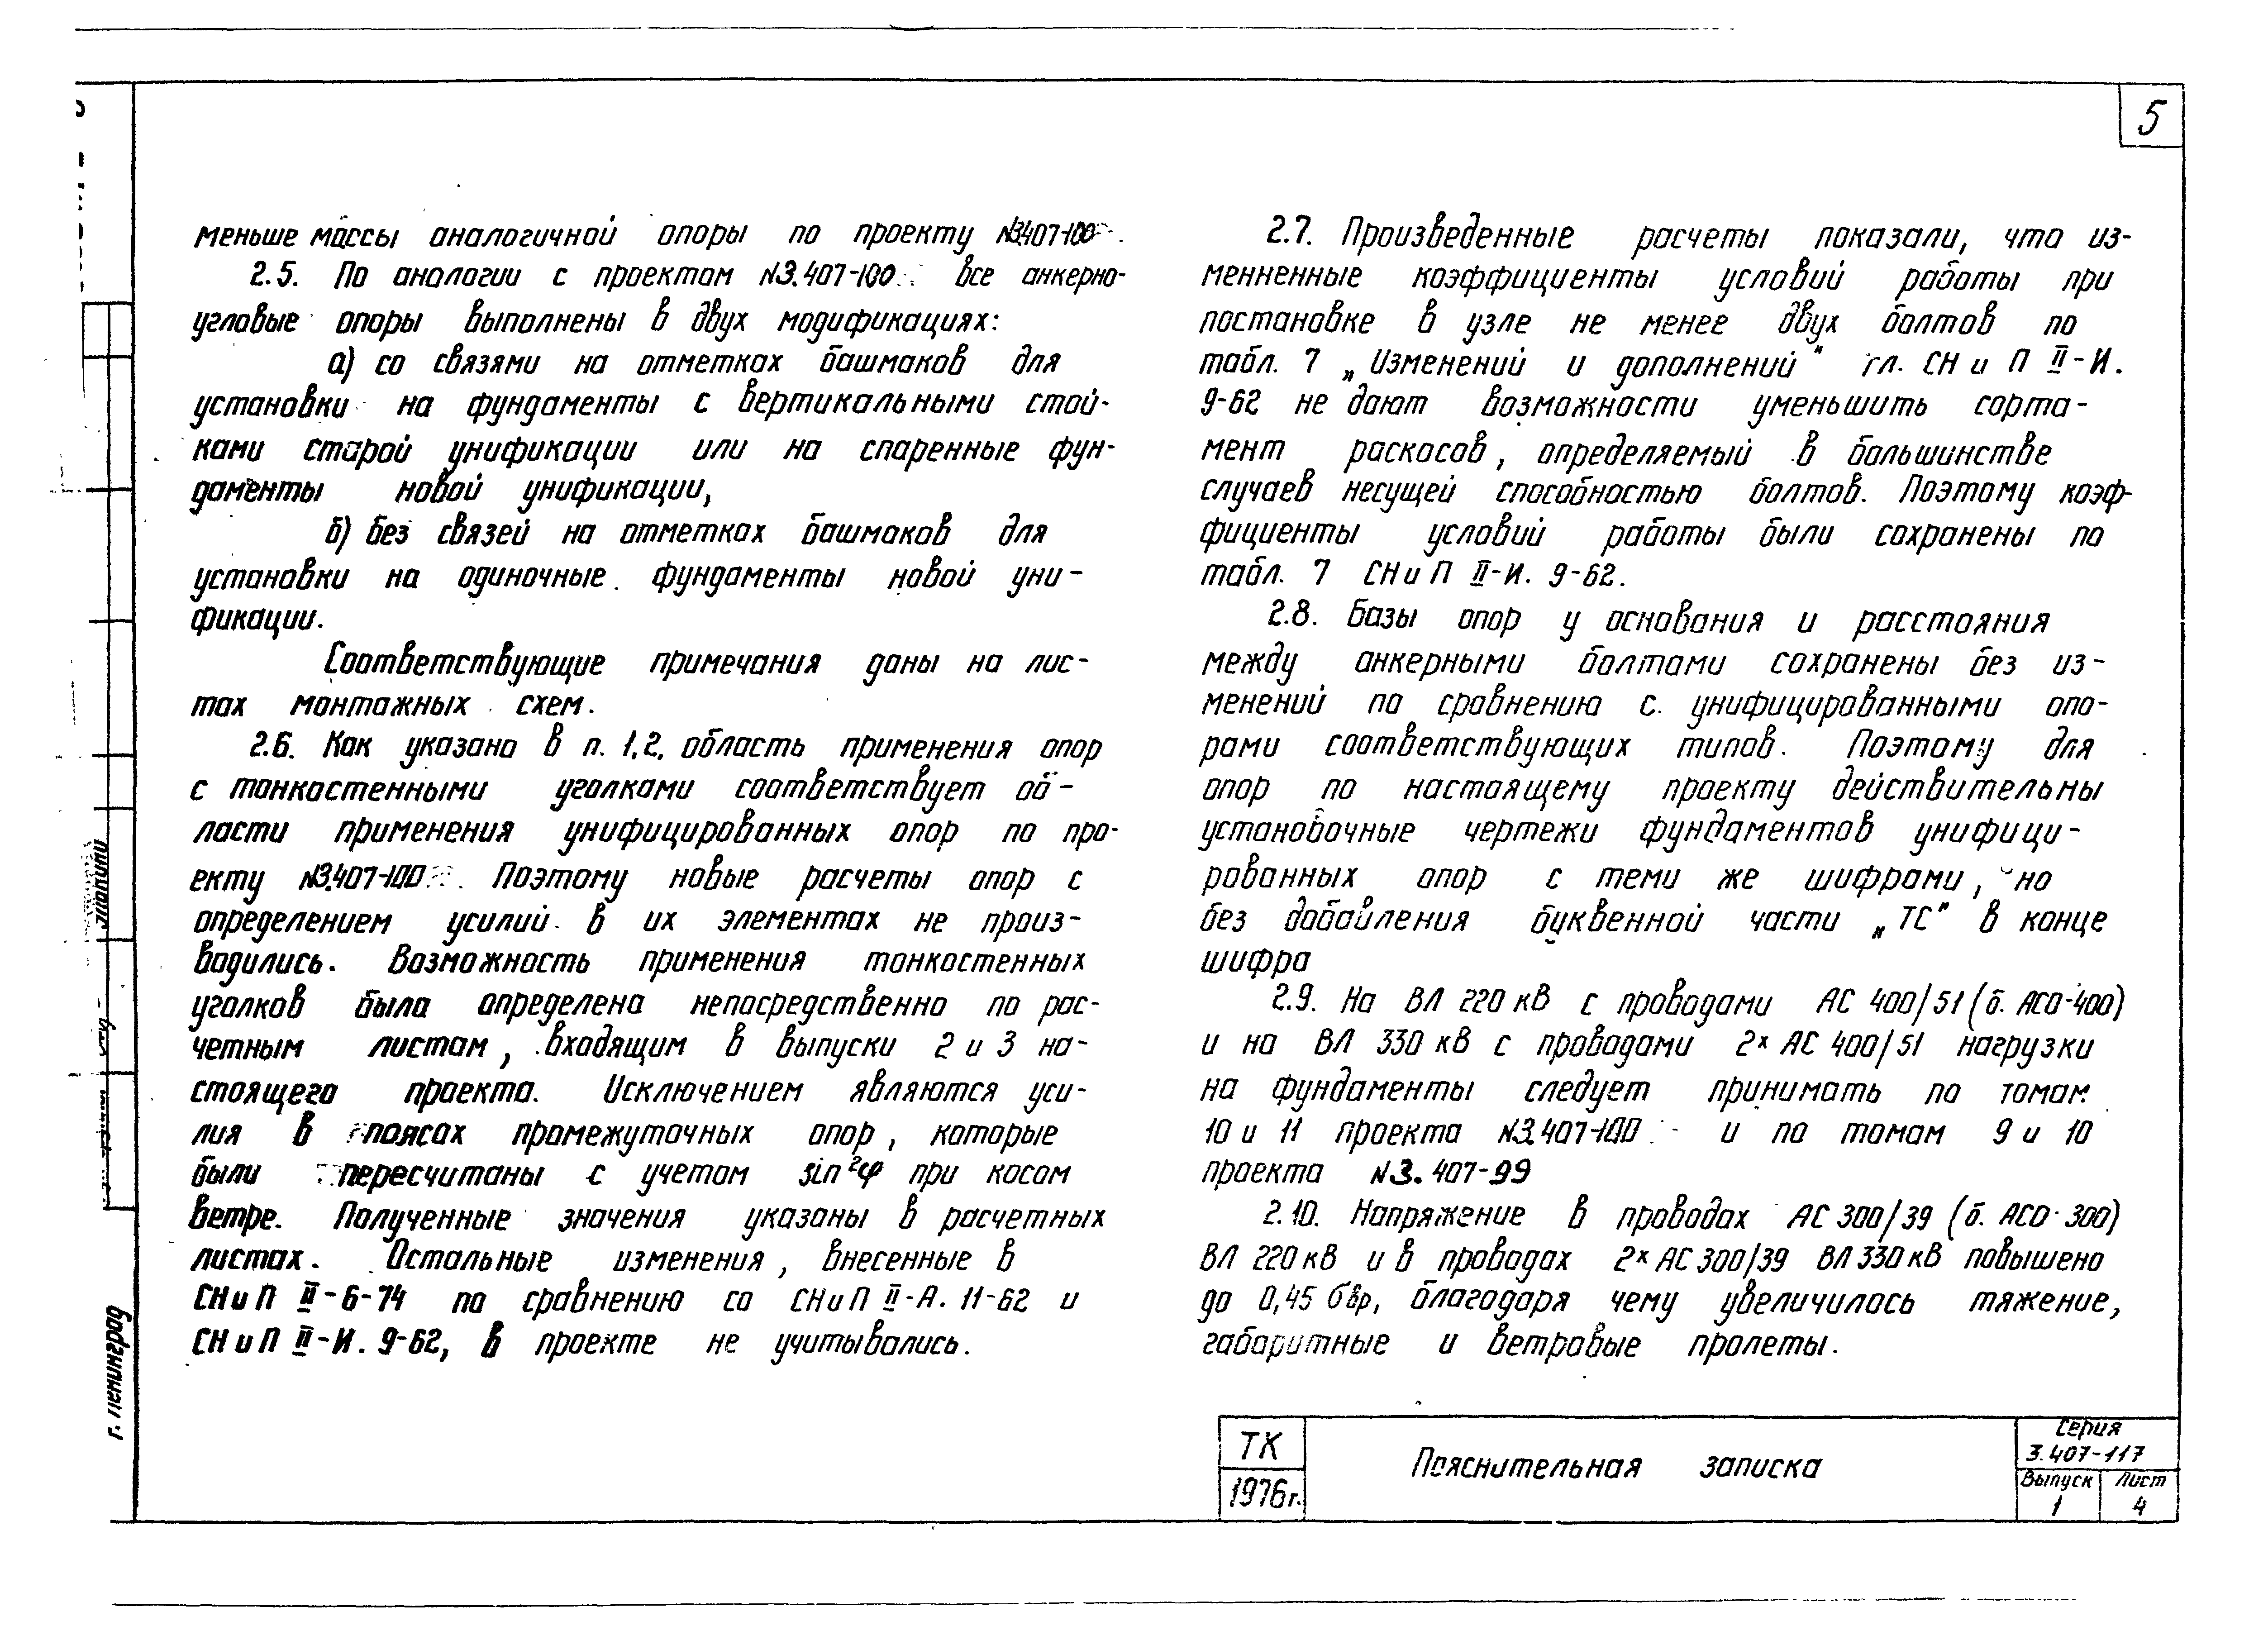 5
меньше массы аналогичной опоры по проекту №3.407-100.
2.5. По аналогии с проектом №3.407-100 все анкерно-
угловые опоры выполнены в двух модификациях:
а) со связями на отметках башмаков для
установки на фундаменты с вертикальными стой-
ками старой унификации или на спаренные фун-
даменты новой унификации,
б) без связей на отметках башмаков для
установки на одиночные фундаменты новой уни-
фикации.
Соответствующие примечания даны на лис-
тах монтажных схем.
2.6. Как указано в п. 1.2. область применения опор
с тонкостенными уголками соответствует об-
ласти применения унифицированных опор по про-
екту №3.407-100. Поэтому новые расчеты опор с
определением усилий в их элементах не произ-
водились. Возможность применения тонкостенных
уголков была определена непосредственно по рас-
четным листам, входящим в выпуски 2 и 3 на-
стоящего проекта. Исключением являются уси-
лия в поясах промежуточных опор, которые
были пересчитаны с учетом sin²φ при косом
ветре. Полученные значения указаны в расчетных
листах. Остальные изменения, внесенные в
СНиП II-6-74 по сравнению со СНиП II-А. 11-62 и
СНиП II-И. 9-62, в проекте не учитывались.
2.7. Произведенные расчеты показали, что из-
менненные коэффициенты условий работы при
постановке в узле не менее двух болтов по
табл. 7 „Изменений и дополнений" гл. СН и П II-И.
9-62 не дают возможности уменьшить сорта-
мент раскосов, определяемый в большинстве
случаев несущей способностью болтов. Поэтому коэф-
фициенты условий работы были сохранены по
табл. 7 СНиП II-И. 9-62.
2.8. Базы опор у основания и расстояния
между анкерными болтами сохранены без из-
менений по сравнению с унифицированными опо-
рами соответствующих типов. Поэтому для
опор по настоящему проекту действительны
установочные чертежи фундаментов унифици-
рованных опор с теми же шифрами, но
без добавления буквенной части „ТС" в конце
шифра
2.9. На ВЛ 220 кВ с проводами АС 400/51 (б. АСО-400)
и на ВЛ 330 кВ с проводами 2× АС 400/51 нагрузки
на фундаменты следует принимать по томам
10 и 11 проекта №3.407-100 и по томам 9 и 10
проекта №3.407-99
2.10. Напряжение в проводах АС 300/39 (б. АСО-300)
ВЛ 220 кВ и в проводах 2× АС 300/39 ВЛ 330 кВ повышено
до 0,45 бвр, благодаря чему увеличилось тяжение,
габаритные и ветровые пролеты.
г. Ленинград
ТК
1976г.
Пояснительная записка
Серия
3.407-117
Выпуск
1
Лист
4